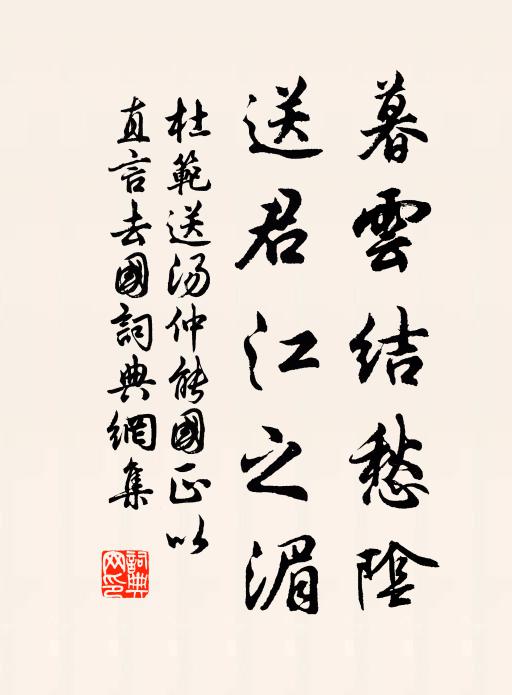 暮雲结愁陰
送君江之湄
杜範送汤仲能國正以
直言去國詞典網集
詞典網印